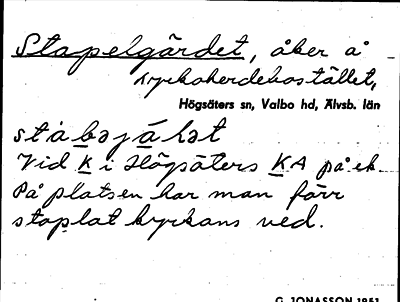 Stapelgärdet, åker å
kyrkoherdebostället,
Högsäters sn, Valbo hd, Älvsb. län
Vid K i Högsäters KA på ek.
På platsen har man förr
staplat kyrkans ved.
G. JONASSON 1951